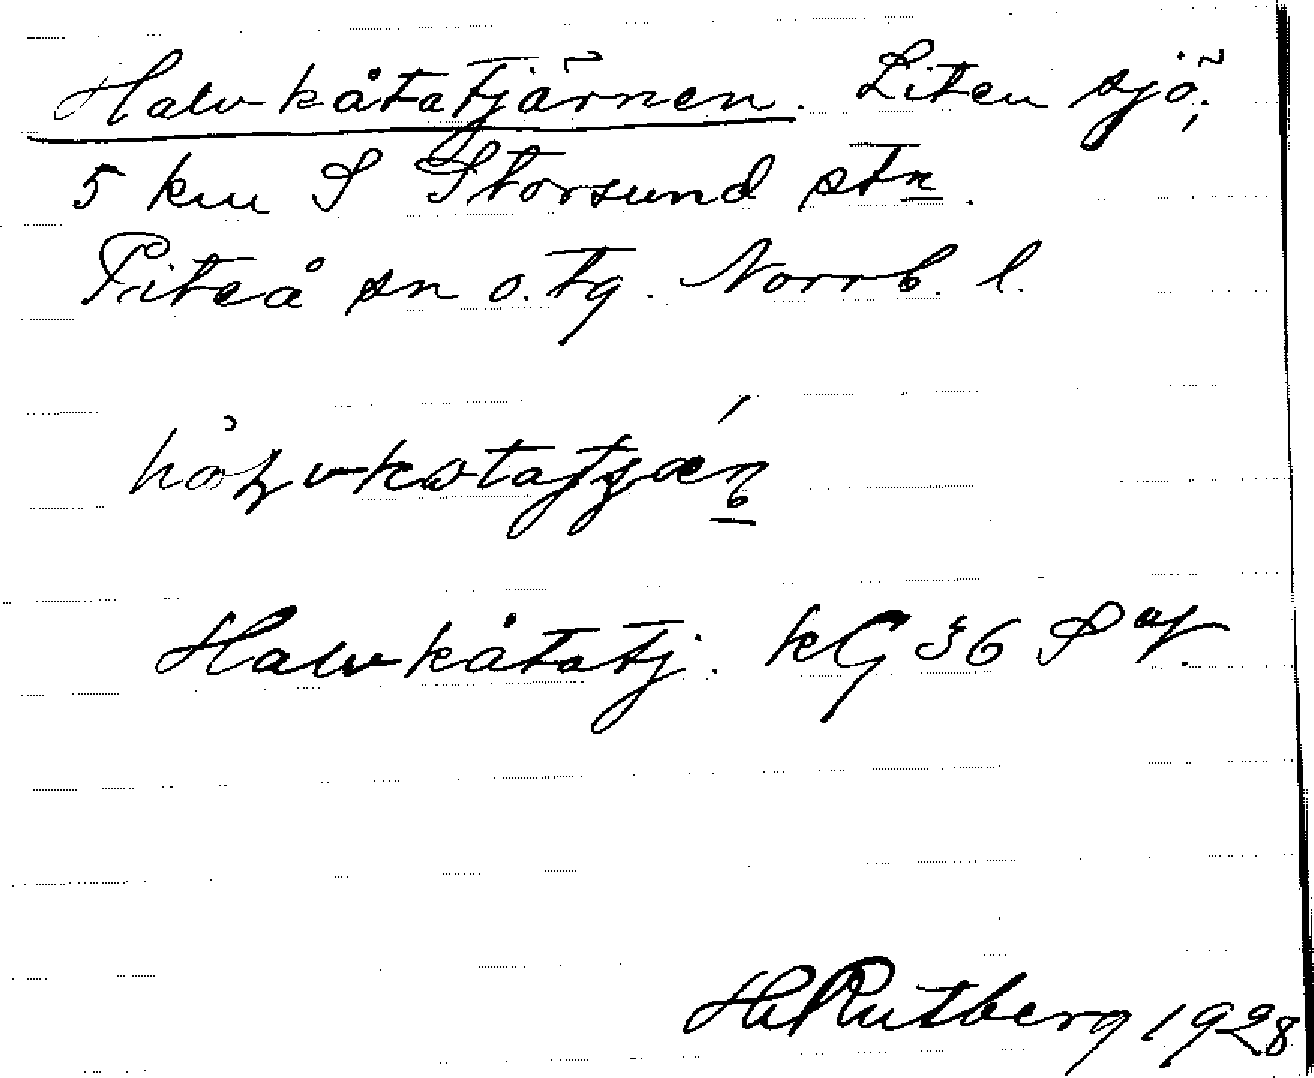 Halvkåtatjärnen. Liten sjö;
5 km S Storsund stn.
Piteå sn o. tg. Norrb. l.
Halvkåtatj. kG 36 S
H Rutberg 1928